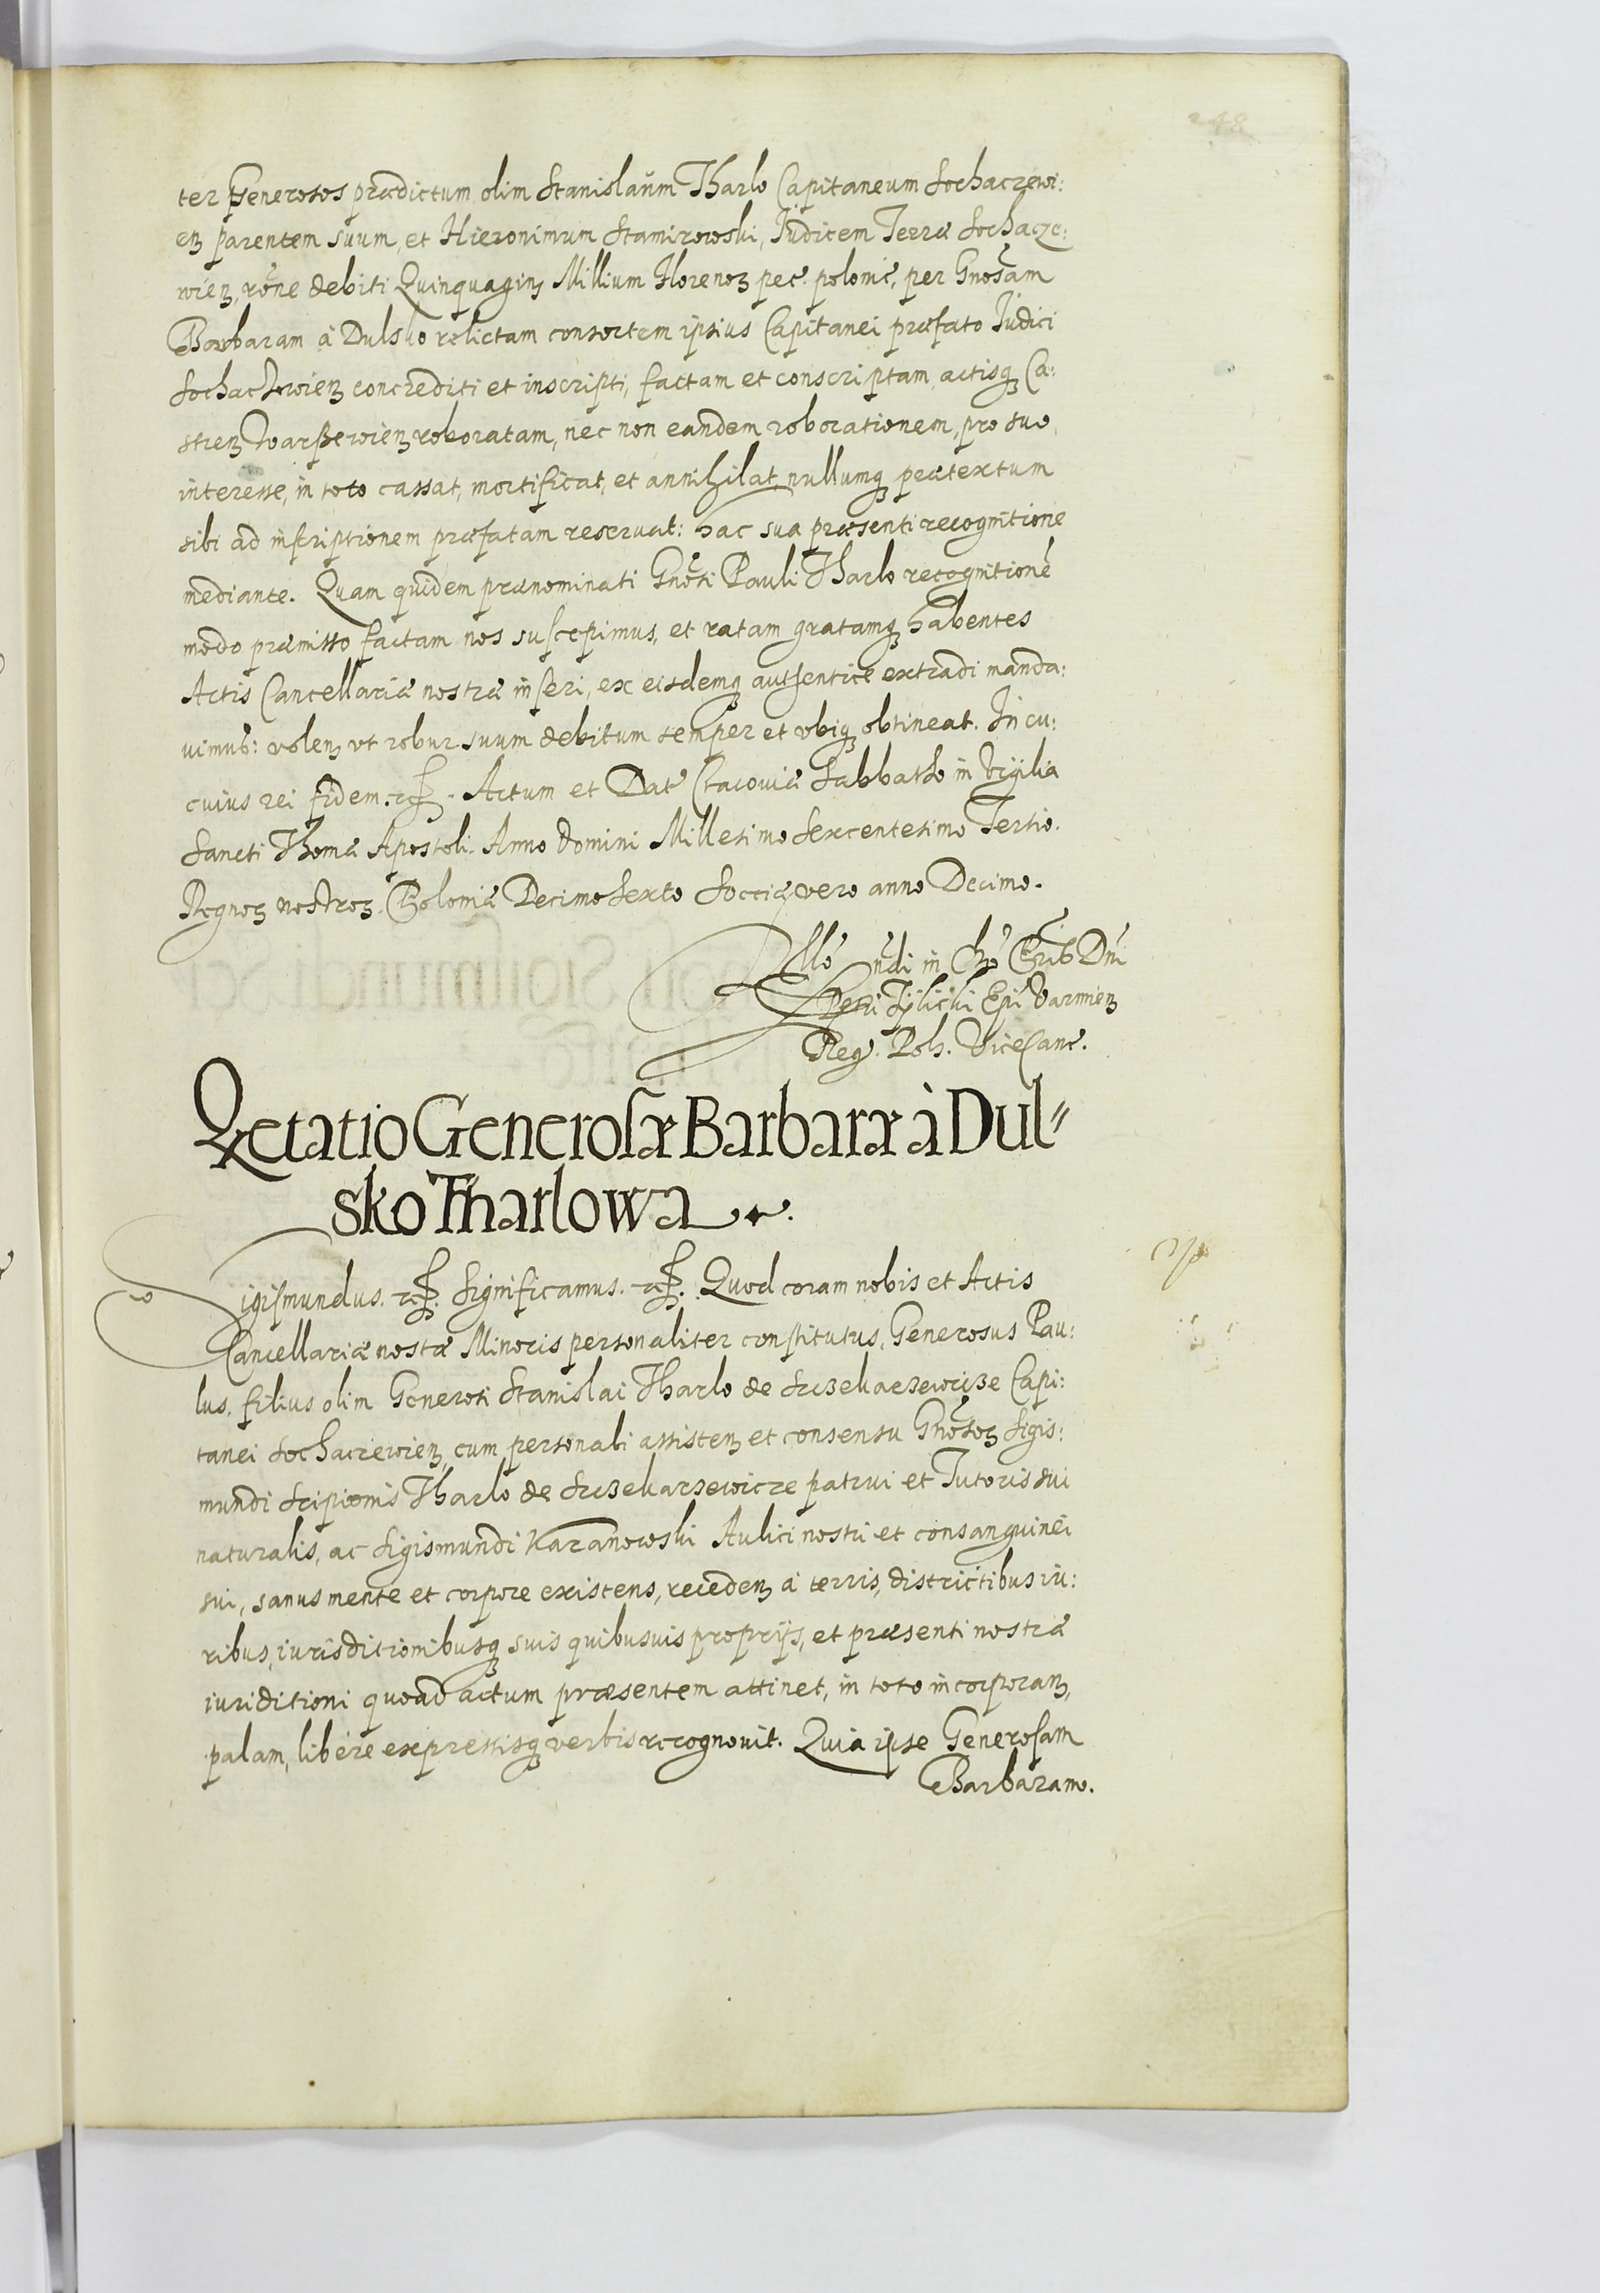 248
ter Generosos prædictum olim Stanislaum Tharlo Capitaneum Sochaczewi:
eñ parentem suum, et Hieronimum Stamirowski, Iudicem Terræ Sochacze:
wień, rõne debiti Quinquagint Millium Florenoꝝ pec. polonic, per Gnosam
Barbaram à Dulsko relictam consortem ipsius Capitanei præfato Iudici
Sochaczewień concrediti et inscripti, factam et conscriptam, actisqꝫ Ca:
streñ Warssewień roboratam, nec non eandem roborationem, pro suo
interesse, in toto cassat, mortificat, et annihilat, nullumqꝫ prætextum
sibi ad inscriptionem præfatam reservat: hac sua præsenti recognitione
mediante. Quam quidem prænominati Gnosi Pauli Tharlo recognitionē
modo præmisso factam nos suscepimus, et ratam gratamqꝫ habentes
Actis Cancellariæ nostræ inseri, ex eisdemqꝫ authentice extradi manda:
uimus: volen, vt robur suum debitum semper et vbiqꝫ obtineat. In cu:
cuius rei fidem. etc. Actum et Dat Cracoviæ Sabbatho in Vigilia
Sancti Thomæ Apostoli. Anno Domini Millesimo Sexcentesimo Tertio.
Regnoꝝ nostroꝝ Poloniæ Decimo Sexto Sveciæ vero anno Decimo.
Rllo ndi in Chõ Prĩs Dnĩ
Petri Tylicki Epĩ Varmień
Reg. Pol. ViceCanc.
Qetatio Generosæ Barbaræ à Dul"
sko Tharlowa
Sigismundus. etc. Significamus. etc. Quod coram nobis et Actis
Cancellariæ nostræ Minoris personaliter constitutus, Generosus Pau:
lus, filius olim Generosi Stanislai Tharlo de Sczekarzewicze Capi:
tanei Sochaczewień, cum personali assisteñ et consensu Gnosoꝝ Sigis:
mundi Scipionis Tharlo de Sczekarzewicze patrui et Tutoris sui
naturalis, ac Sigismundi Kazanowski Aulici nostri et consanguinei
sui, sanus mente et corpore existens, recedeñ à terris, districtibus iu:
ribus, iurisditionibusqꝫ suis quibusuis proprijs, et præsenti nostræ
iuriditioni quoad actum præsentem attinet, in toto incorporañ,
palam, libere expressisqꝫ verbis recognouit. Quia ipse Generosam
Barbaram.